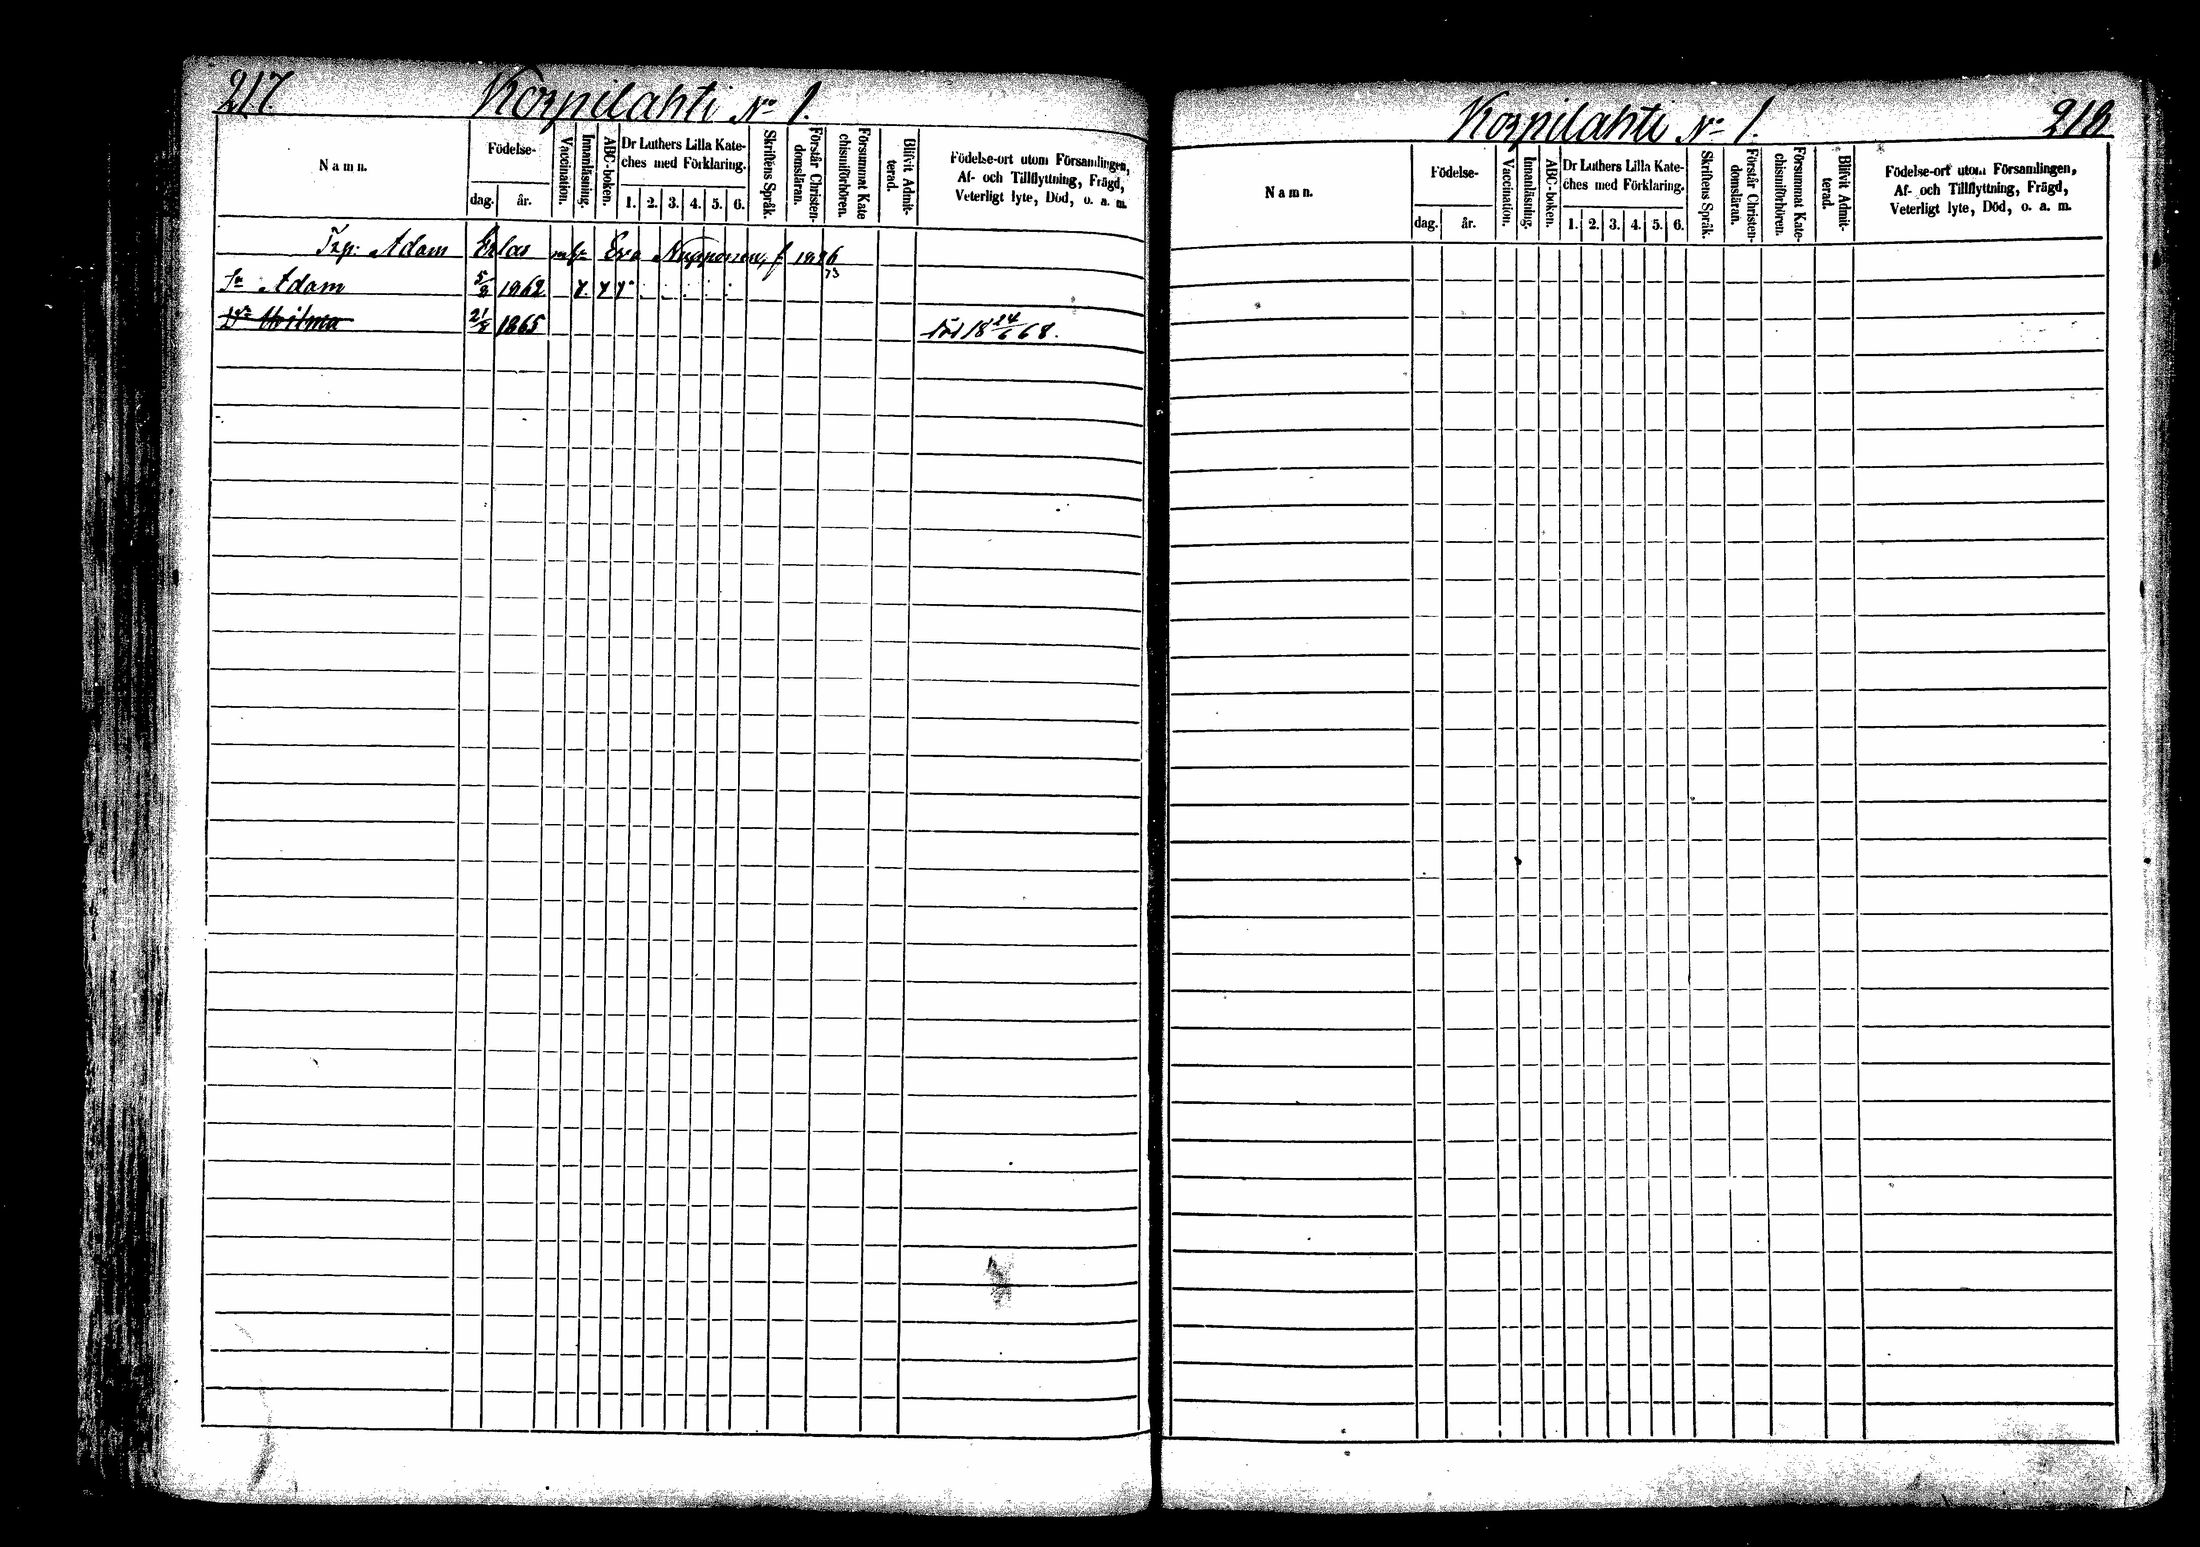 217.
Korpilahti No 1.
Namn.
Födelse-
dag.
år.
Vaccination.
Innanläsning.
ABC-boken.
Dr Luthers Lilla Kate-
ches med Förklaring.
1. 2. 3. 4. 5. 6.
Skriftens Språk.
Förstår Christen-
domsläran.
Försummat Kate
chismiförhören.
Blifvit Admit-
terad.
Födelse-ort utom Församlingen,
Af- och Tillflyttning, Frägd,
Veterligt lyte, Död, o. a. m.
Adam Eva Nupponen, f.
Sn Adam 5/8 1862
Dr Wilma 21/8 1865 död 18 24/6 68.
Korpilahti No 1.
218
Namn.
Födelse-
dag.
år.
Vaccination.
Innanläsning.
ABC-boken.
Dr Luthers Lilla Kate-
ches med Förklaring.
1. 2. 3. 4. 5. 6.
Skriftens Språk.
Förstår Christen-
domsläran.
Försummat Kate-
chismiförhören.
Blifvit Admit-
terad.
Födelse-ort utom Församlingen,
Af- och Tillflyttning, Frägd,
Veterligt lyte, Död, o. a. m.